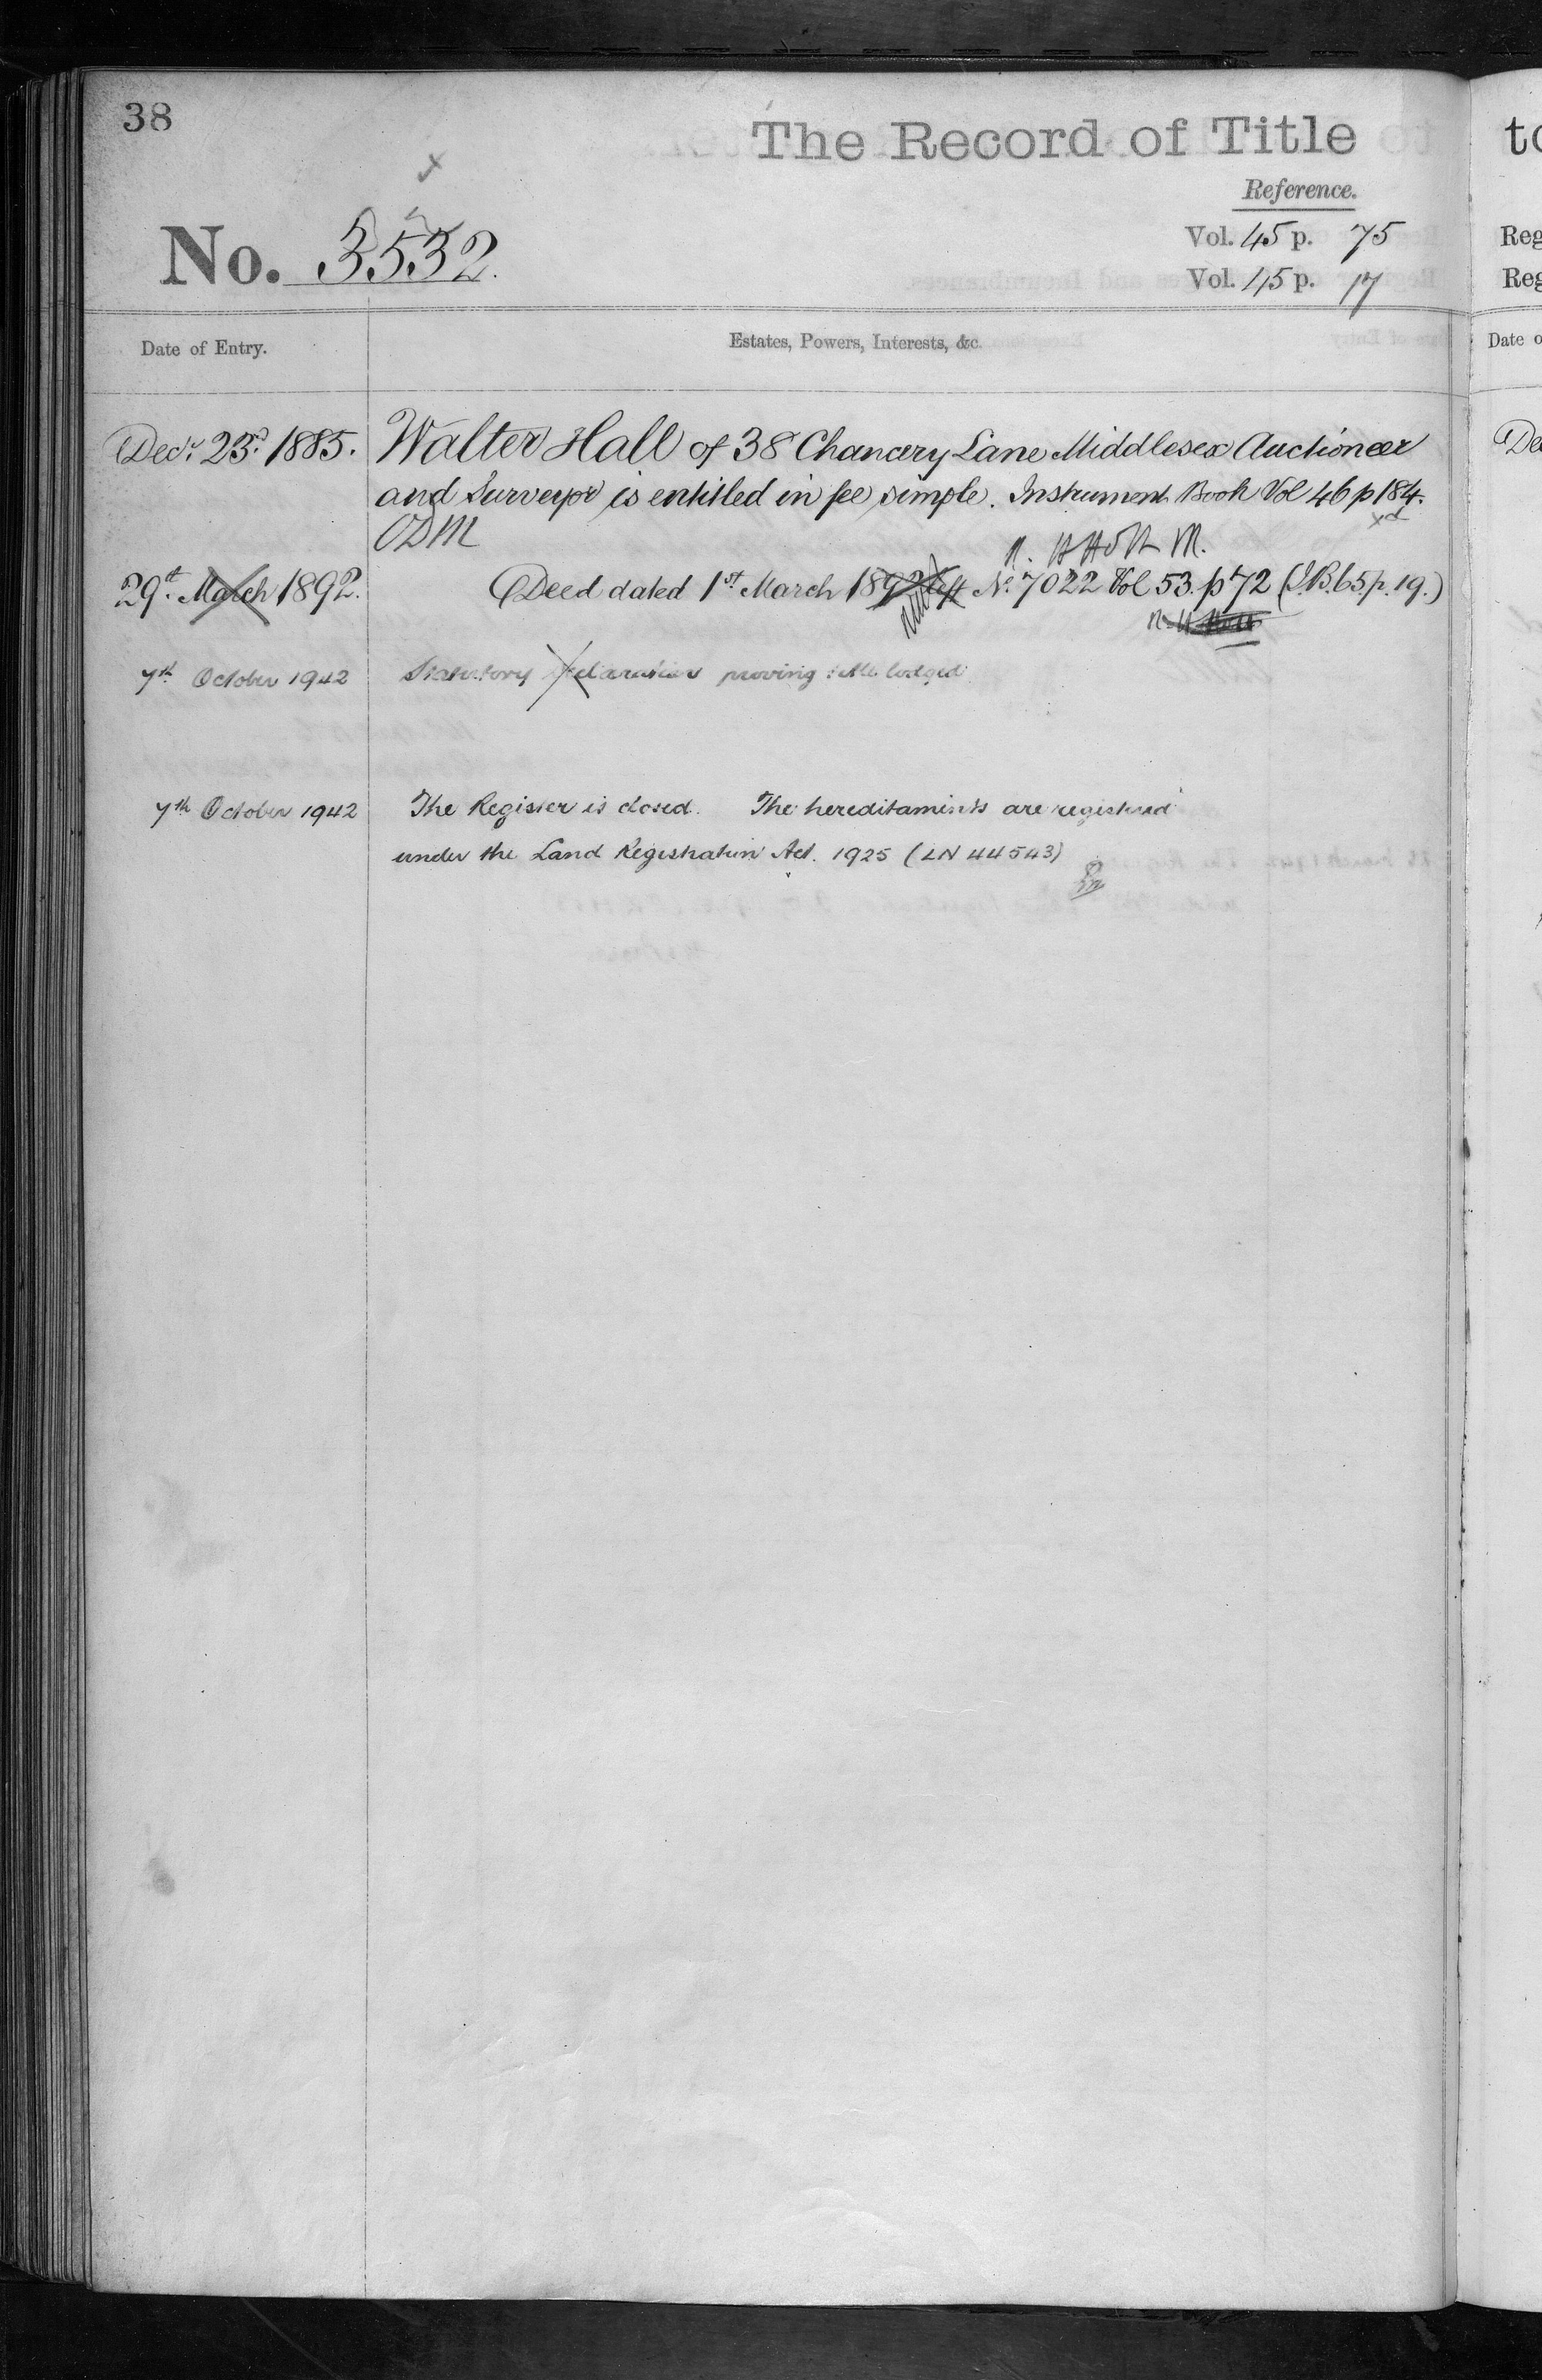 38
The Record of Title
Reference.
No. 3532.
Vol. 45 p. 75
Vol. 45 p. 17
Date of Entry.
Estates, Powers, Interests, &c.
Decr. 23d. 1885. Walter Hall of 38 Chancery Lane Middlesex Auctioneer
and Surveyor is entitled in fee simple. Instrument Book Vol 46 p 184.
ODM
29th. March 1892. Deed dated 1st March 1892 left No. 7022 Vol 53. p 72 (I.B. 65. p. 19.)
7th October 1942 Statutory declaration proving title lodged
7th October 1942 The Register is closed. The hereditaments are registered
under the Land Registration Act. 1925 (LN 44543)
to
Reg
Reg
Date o
De